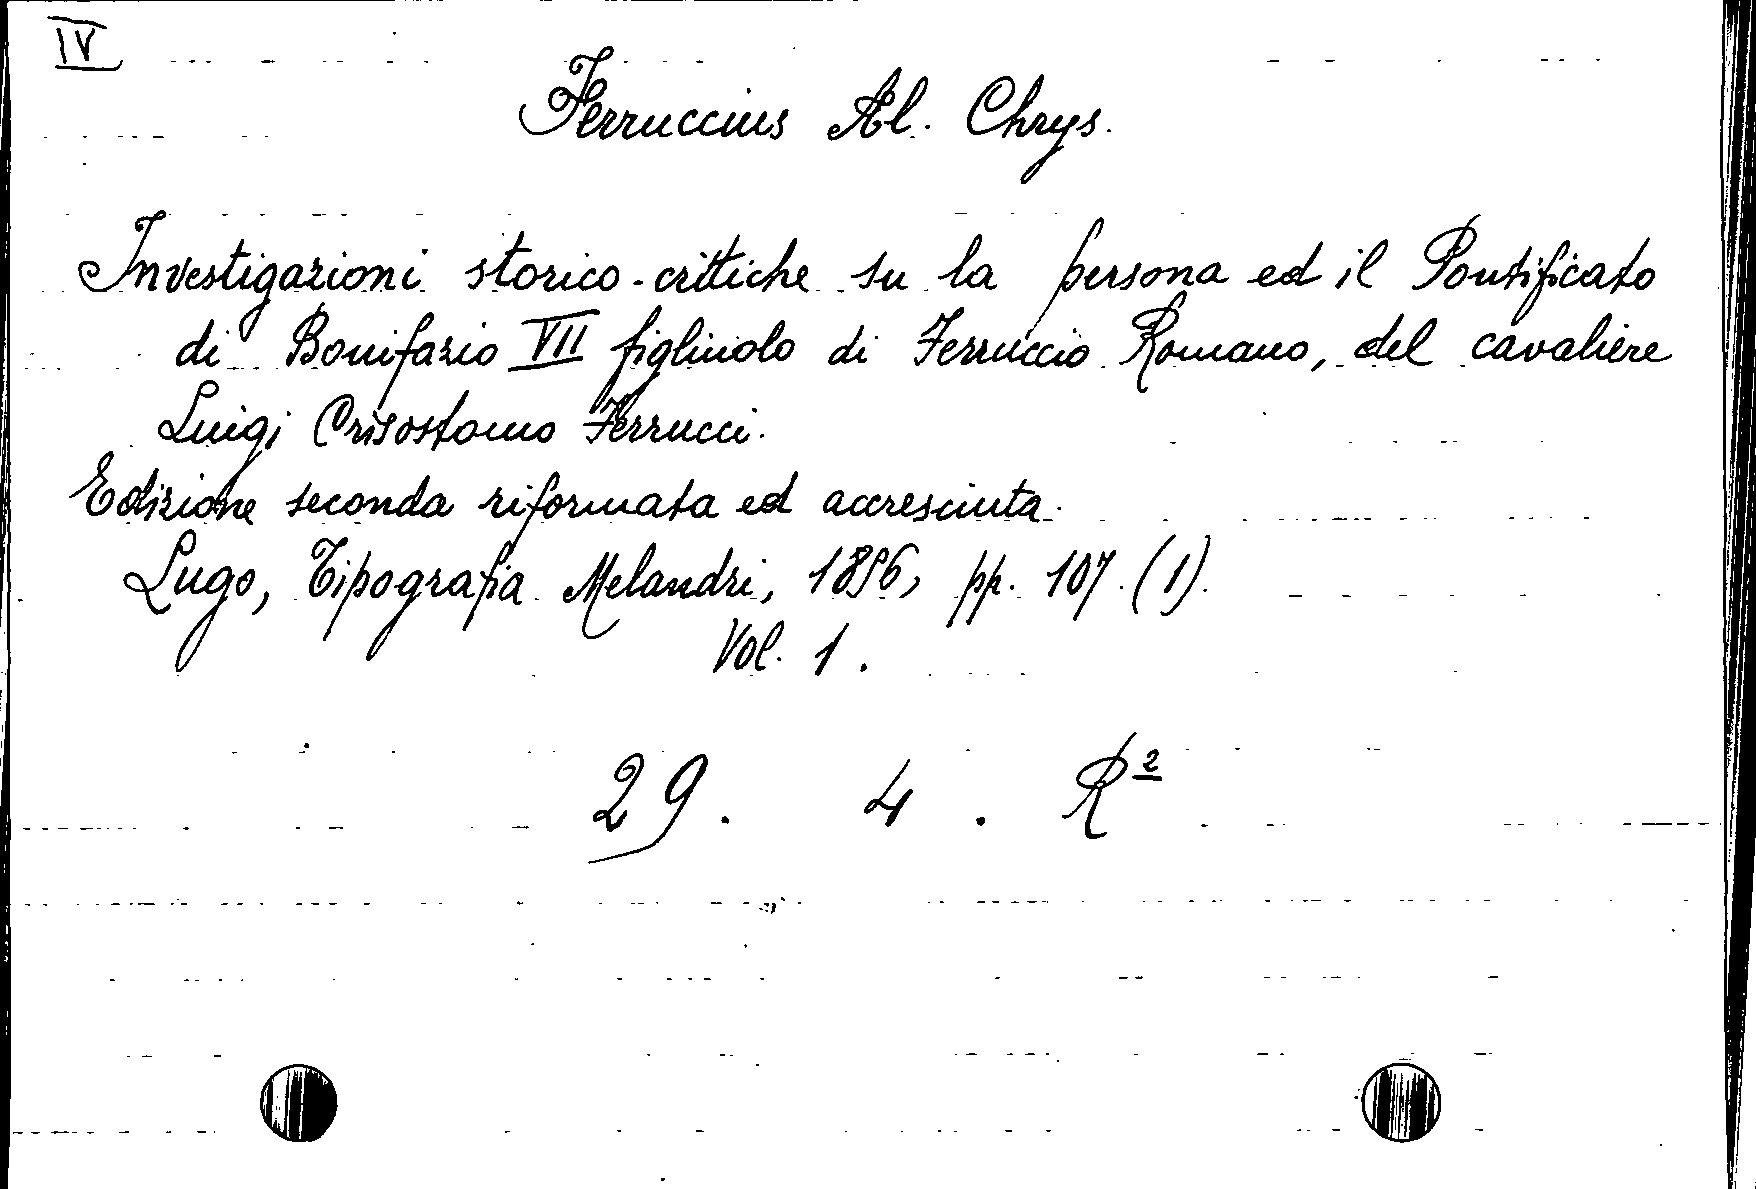 IV
Ferruccius Al. Chrys.
Investigazioni storico-crittiche su la persona ed il Pontificato
di Bonifazio VII figliuolo di Ferruccio Romano, del cavaliere
Luigi Crisostomo Ferrucci.
Edizione seconda riformata ed accresciuta.
Lugo, Tipografia Melandri, 1856, pp. 107. (1).
Vol. 1.
29. 4. R²